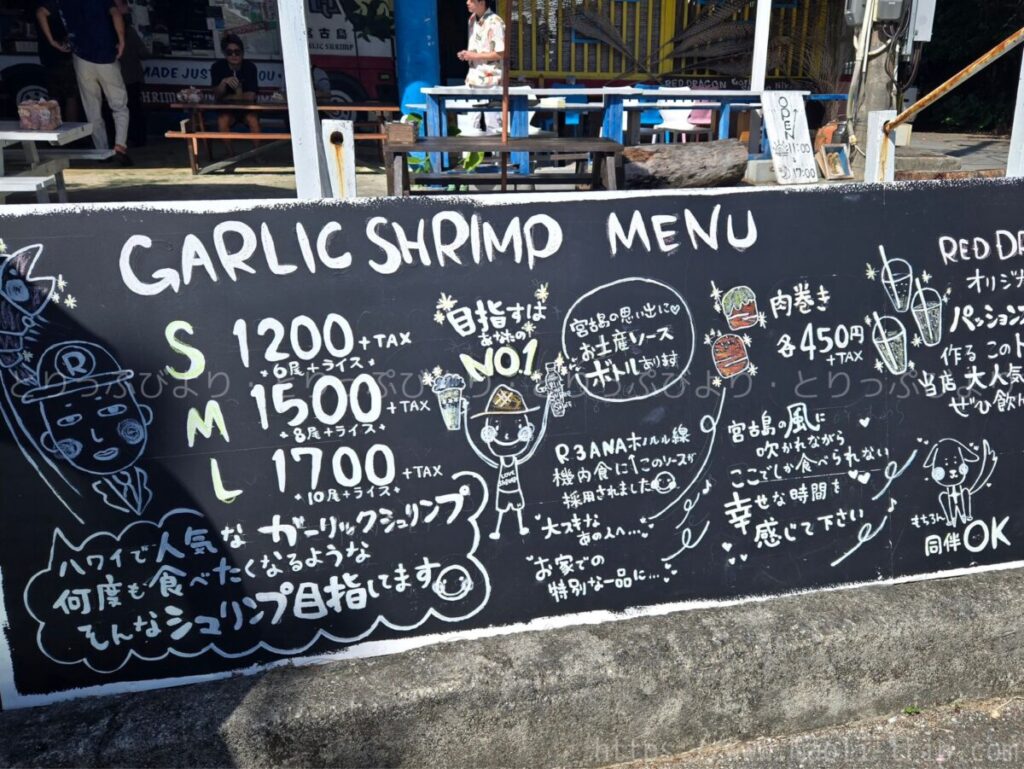 宮古島
MADE JUST
YOU
SHRIMP
RED DRAGON
OPEN
11:00
17:00
GARLIC SHRIMP MENU
S 1200 +TAX
6尾+ライス
M 1500 +TAX
8尾+ライス
L 1700 +TAX
10尾+ライス
R
ハワイで人気な ガーリックシュリンプ
何度も食べたくなるような
そんなシュリンプ目指してます
目指すは
あなたの
NO.1
LOVE
SHRIMP
宮古島の思い出に♡
お土産ソース
ボトルあります
R3ANAホノルル線
機内食に1このソースが
採用されました
大スキな
あの人へ...
お家での
特別な一品に...
肉巻き
各450円
+TAX
宮古島の風に
吹かれながら
ここでしか食べられない
幸せな時間を
感じて下さい
RED DR
オリジナ
パッション
作る このト
当店 大人気
ぜひ飲ん
もちろん
同伴OK
とりっぷびより・とりっぷびより・とりっぷびより・とりっぷ